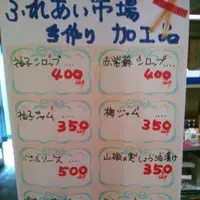 ふれあい市場
手作り 加工品
柚子シロップ.....
400
赤紫蘇シロップ....
400
柚子ジャム.....
350
梅ジャム.....
350
バジルソース...
500
山椒の実しょうゆ漬け
350